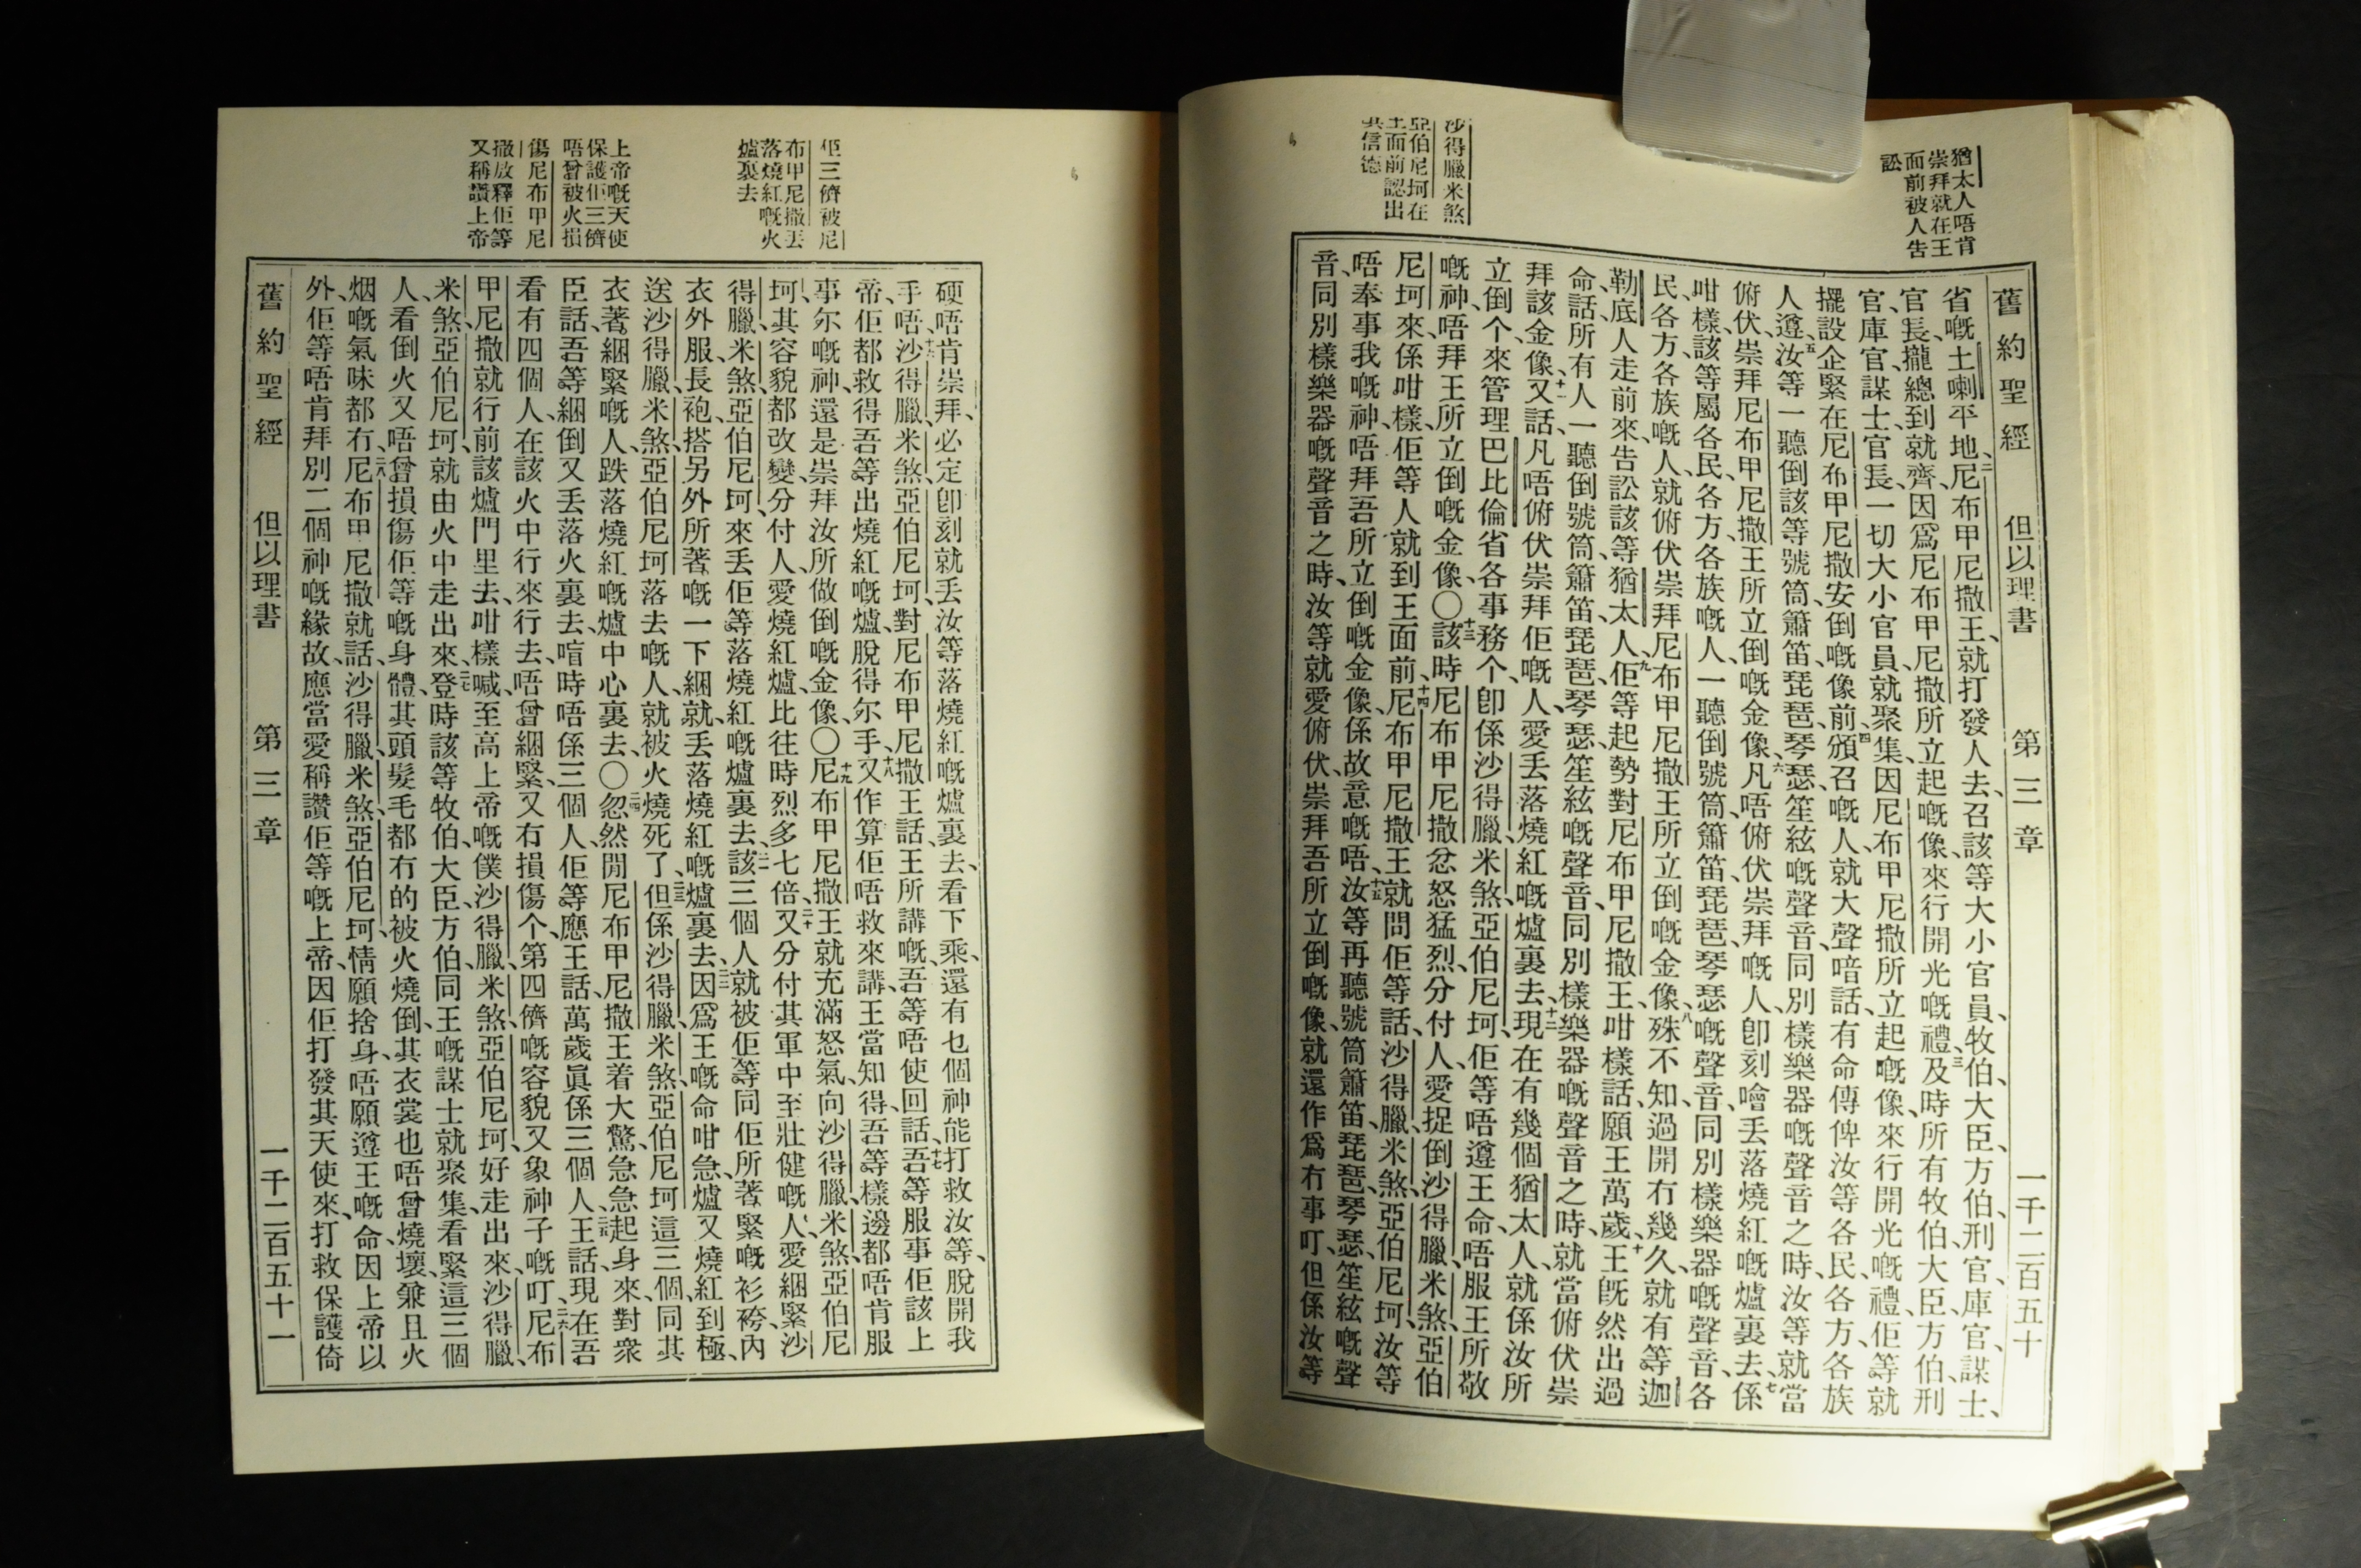 猶太人唔肯
崇拜就在王
面前被人告
訟
沙得臘米煞
亞伯尼坷在
王面前認出
其信德
舊約聖經 但以理書 第三章 一千二百五十
省嘅土喇平地、二尼布甲尼撒王、就打發人去、召該等大小官員、牧伯、大臣、方伯、刑官、庫官、謀士、
官長、攏總到就齊、因爲尼布甲尼撒所立起嘅像、來行開光嘅禮、三及時所有牧伯、大臣、方伯、刑
官、庫官、謀士、官長、一切大小官員、就聚集、因尼布甲尼撒所立起嘅像、來行開光嘅禮、佢等就
擺設企緊在尼布甲尼撒安倒嘅像前、四頒召嘅人、就大聲喑話、有命傳俾汝等各民、各方、各族
人遵、五汝等一聽倒該等號筒、簫笛、琵琶、琴瑟、笙絃嘅聲音、同別樣樂器嘅聲音之時、汝等就當
俯伏、崇拜尼布甲尼撒王所立倒嘅金像、六凡唔俯伏崇拜嘅人、卽刻噲丟落燒紅嘅爐裏去、七係
咁樣、該等屬各民、各方、各族嘅人、一聽倒號筒、簫笛、琵琶、琴瑟嘅聲音、同別樣樂器嘅聲音、各
民、各方、各族嘅人、就俯伏崇拜尼布甲尼撒王所立倒嘅金像、八殊不知、過開冇幾久、就有等迦
勒底人走前來、告訟該等猶太人、九佢等起勢對尼布甲尼撒王、咁樣話、願王萬歲、十王旣然出過
命話、所有人一聽倒號筒、簫笛、琵琶、琴瑟、笙絃嘅聲音、同別樣樂器嘅聲音之時、就當俯伏崇
拜該金像、十一又話、凡唔俯伏崇拜佢嘅人、愛丟落燒紅嘅爐裏去、十二現在有幾個猶太人、就係汝所
立倒个、來管理巴比倫省各事務个、卽係沙得臘、米煞、亞伯尼坷、佢等唔遵王命、唔服王所敬
嘅神、唔拜王所立倒嘅金像、〇十三該時尼布甲尼撒忿怒猛烈、分付人、愛捉倒沙得臘、米煞、亞伯
尼坷來、係咁樣、佢等人就到王面前、十四尼布甲尼撒王就問佢等話、沙得臘、米煞、亞伯尼坷、汝等
唔奉事我嘅神、唔拜吾所立倒嘅金像、係故意嘅唔、十五汝等再聽號筒、簫笛、琵琶、琴瑟、笙絃嘅聲
音、同別樣樂器嘅聲音之時、汝等就愛俯伏、崇拜吾所立倒嘅像、就還作爲冇事叮、但係汝等
佢三儕被尼
布甲尼撒丟
落燒紅嘅火
爐裏去
上帝嘅天使
保護佢三儕
唔曾被火損
傷尼布甲尼
撒放釋佢等
又稱讚上帝
硬唔肯崇拜、必定卽刻就丟汝等落燒紅嘅爐裏去、看下乘、還有乜個神、能打救汝等、脫開我
手唔、十六沙得臘、米煞、亞伯尼坷、對尼布甲尼撒王話、王所講嘅、吾等唔使回話、十七吾等服事佢該上
帝、佢都救得吾等出燒紅嘅爐、脫得尔手、十八又作算佢唔救來講、王當知得、吾等樣邊都唔肯服
事尔嘅神、還是崇拜汝所做倒嘅金像、〇十九尼布甲尼撒王就充滿怒氣、向沙得臘、米煞、亞伯尼
坷、其容貌都改變、分付人、愛燒紅爐、比往時烈多七倍、二十又分付其軍中至壯健嘅人、愛綑緊沙
得臘、米煞、亞伯尼坷、來丟佢等落燒紅嘅爐裏去、二一該三個人就被佢等、同佢所著緊嘅衫袴、內
衣外服、長袍、搭另外所著嘅、一下綑就、丟落燒紅嘅爐裏去、二二因爲王嘅命咁急、爐又燒紅到極、
送沙得臘、米煞、亞伯尼坷落去嘅人、就被火燒死了、二三但係沙得臘、米煞、亞伯尼坷這三個、同其
衣著、綑緊嘅人、跌落燒紅嘅爐中心裏去、〇二四忽然閒尼布甲尼撒王着大驚、急急起身來、對衆
臣話、吾等綑倒又丟落火裏去、喧時唔係三個人、佢等應王話、萬歲眞係三個人、二五王話、現在吾
看有四個人、在該火中行來行去、唔曾綑緊、又冇損傷个、第四儕嘅容貌、又象神子嘅叮、二六尼布
甲尼撒就行前該爐門里去、咁樣喊、至高上帝嘅僕、沙得臘、米煞、亞伯尼坷、好走出來、沙得臘、
米煞、亞伯尼坷、就由火中走出來、二七登時該等牧伯、大臣、方伯、同王嘅謀士就聚集、看緊這三個
人、看倒火又唔曾損傷佢等嘅身體、其頭髮毛都冇的被火燒倒、其衣裳也唔曾燒壞、兼且火
烟嘅氣味都冇、二八尼布甲尼撒就話、沙得臘、米煞、亞伯尼坷、情願捨身、唔願遵王嘅命、因上帝以
外、佢等唔肯拜別二個神嘅緣故、應當愛稱讚佢等嘅上帝、因佢打發其天使來、打救保護倚
舊約聖經 但以理書 第三章 一千二百五十一